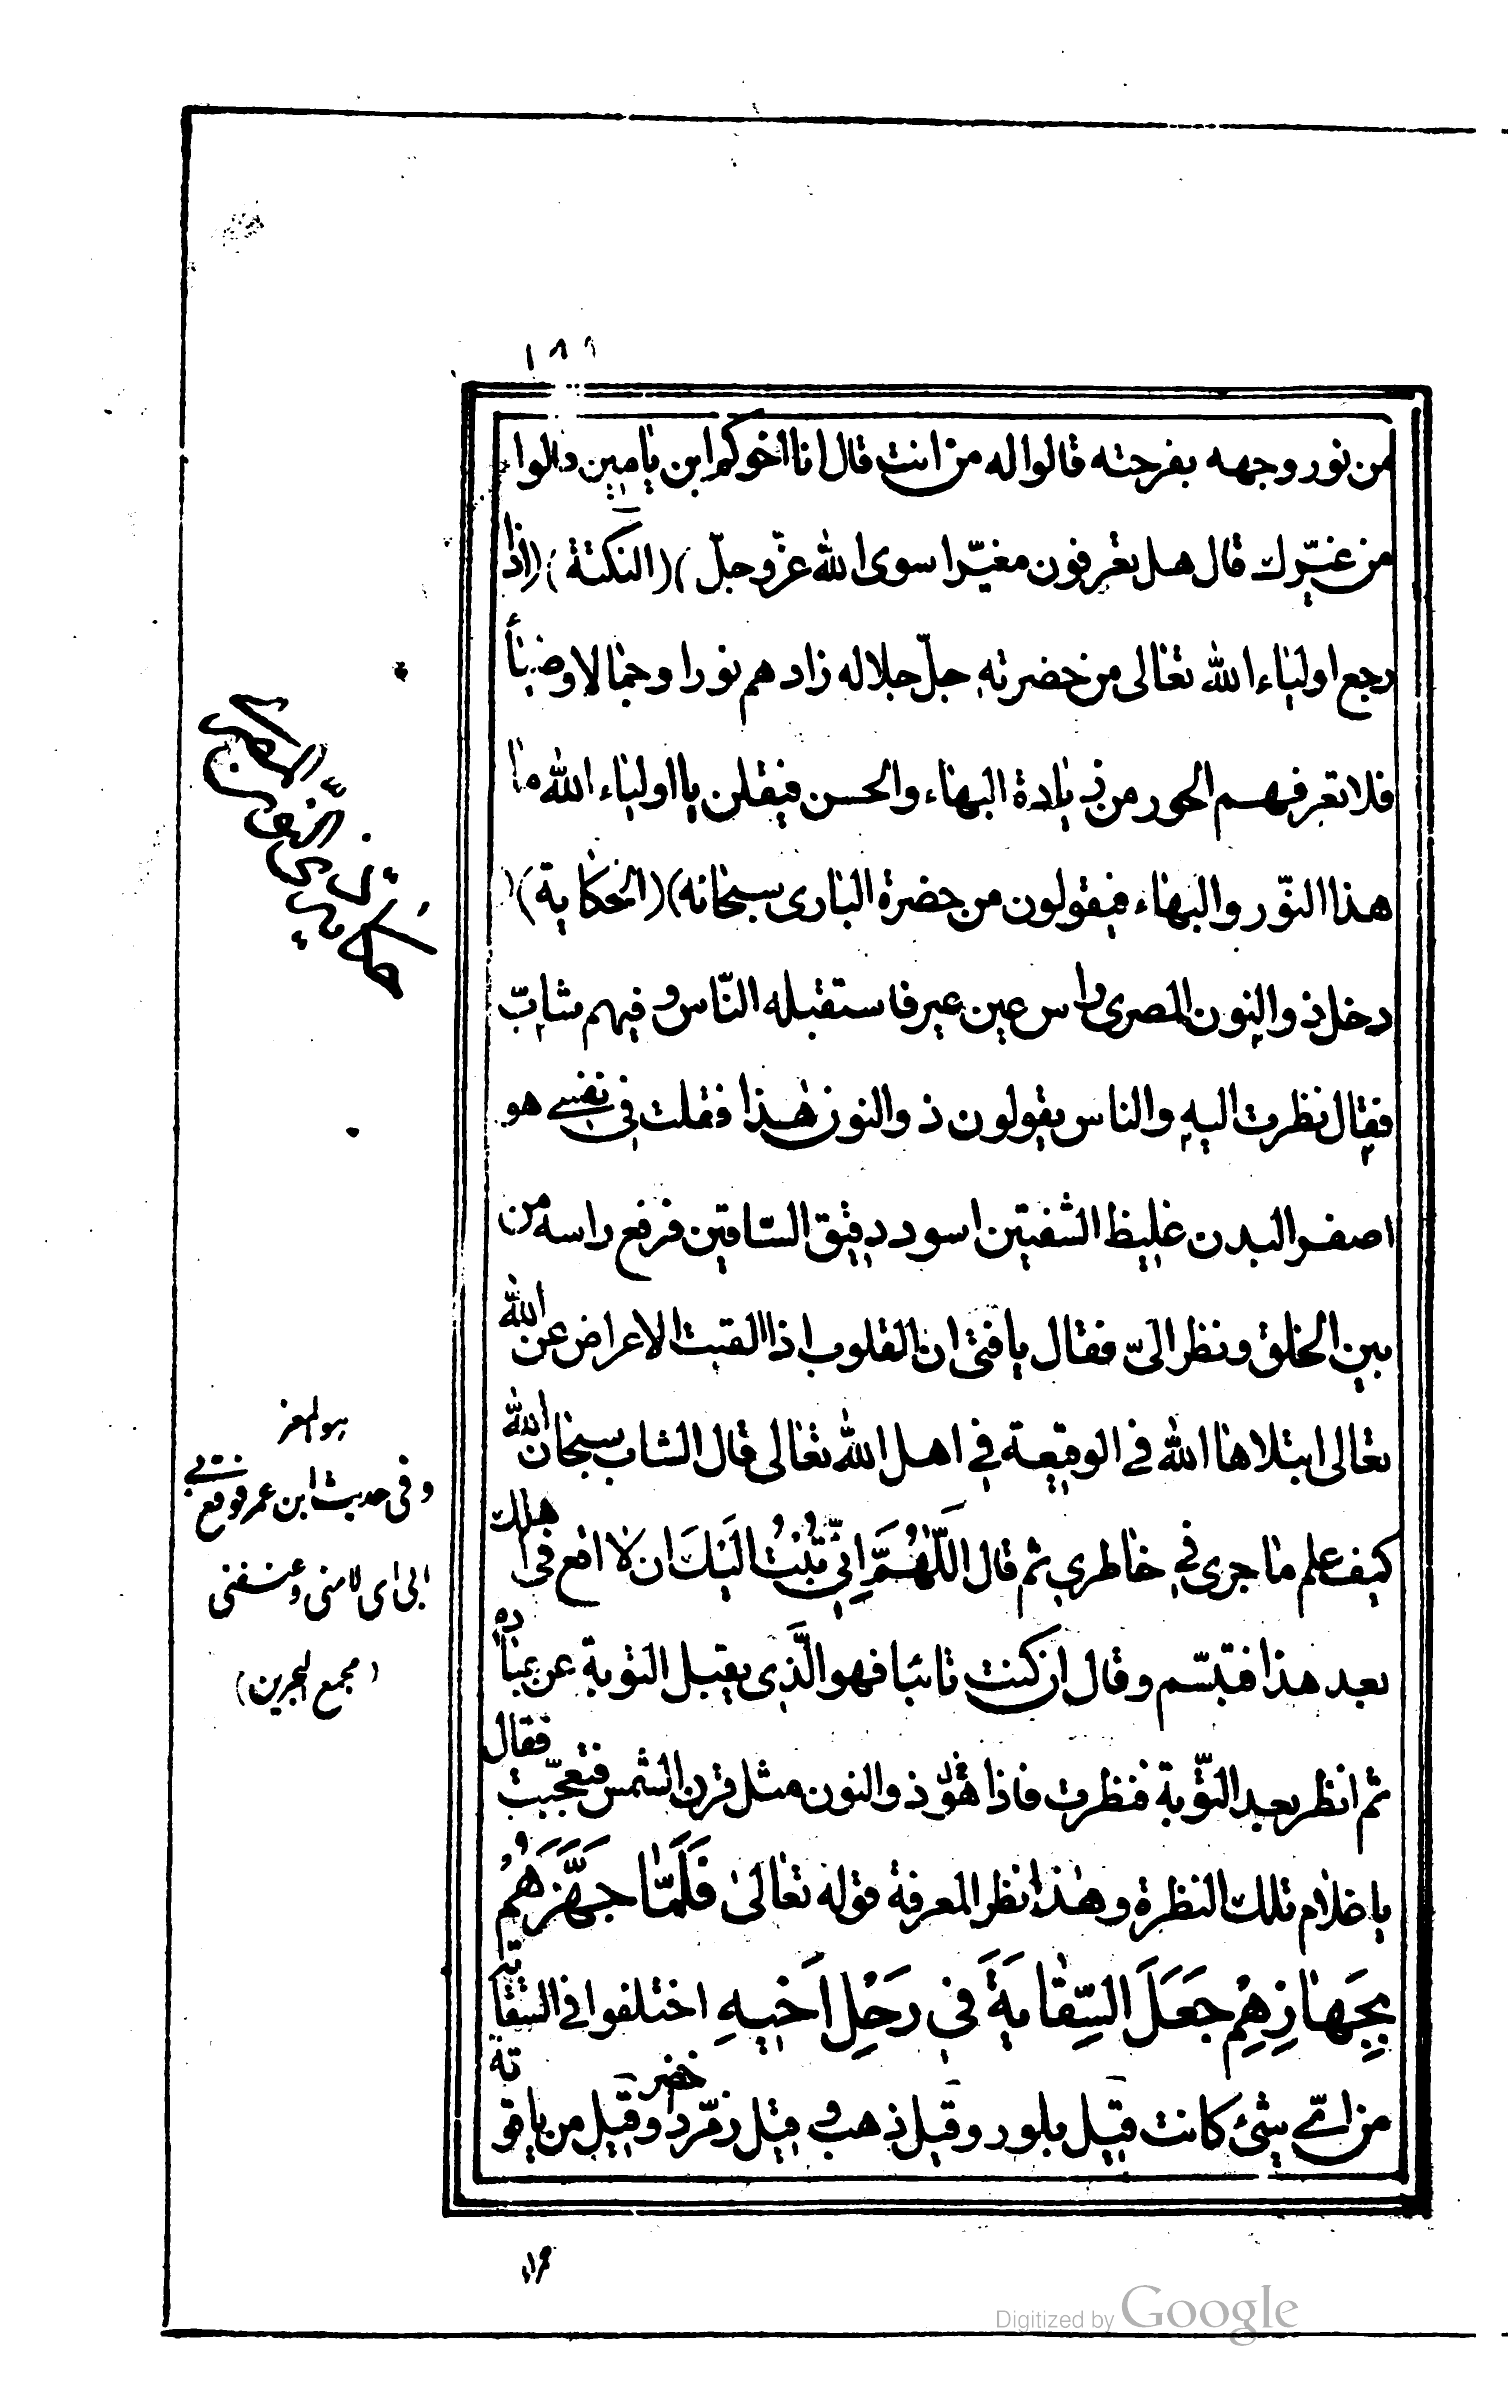 ١٨٩
من نور وجهه بفرحته قالوا له من انت قال انا اخوكم ابن يامين قالوا
من غيّرك قال هل تعرفون مغيّرا سوى الله عزّ وجلّ )( النكتة )( اذا
رجع اولياء الله تعالى من حضرته جلّ جلاله زادهم نورا وجمالا وضياء
فلا تعرفهم الحور من زيادة البهاء والحسن فيقلن يا اولياء الله ما
هذا النّور والبهاء فيقولون من حضرة البارى سبحانه )( الحكاية )(
دخل ذو النون المصرى راس عين عير فاستقبله النّاس وفيهم شابّ
فقال نظرت اليه والناس يقولون ذو النون هذا فقلت في نفسي هو
اصفر البدن غليظ الشفتين اسود دقيق السّاقين فرفع راسه من
بين الخلق ونظر الىّ فقال يا فتى ان القلوب اذا القيت الاعراض عن الله
تعالى ابتلاها الله في الوقيعة في اهل الله تعالى قال الشاب سبحان الله
كيف علم ما جرى في خاطري ثم قال اللّهُمَّ اِنّي تُبْتُ اليَكَ ان لا اقع في اهلك
بعد هذا فتبسّم وقال ان كنت تائبا فهو الّذى يقبل التوبة عن عباده
ثم انظر بعد التّوبة فنظرت فاذا هو ذو النون مثل قرن الشمس فتعجّبت فقال
يا غلام تلك النظرة وهذا نظر المعرفة قوله تعالى فَلَمّا جَهَّزَهُمْ
بِجَهازِهِمْ جَعَلَ السِّقايَةَ في رَحْلِ اَخيهِ اختلفوا في السقاية
من اىّ شئ كانت قيل بلور وقيل ذهب وقيل زمّرد خضر وقيل من ياقوتة
وفى حديث ابن عمر فوقع بى
ابى اى لامنى وعنفنى
(مجمع البحرين)